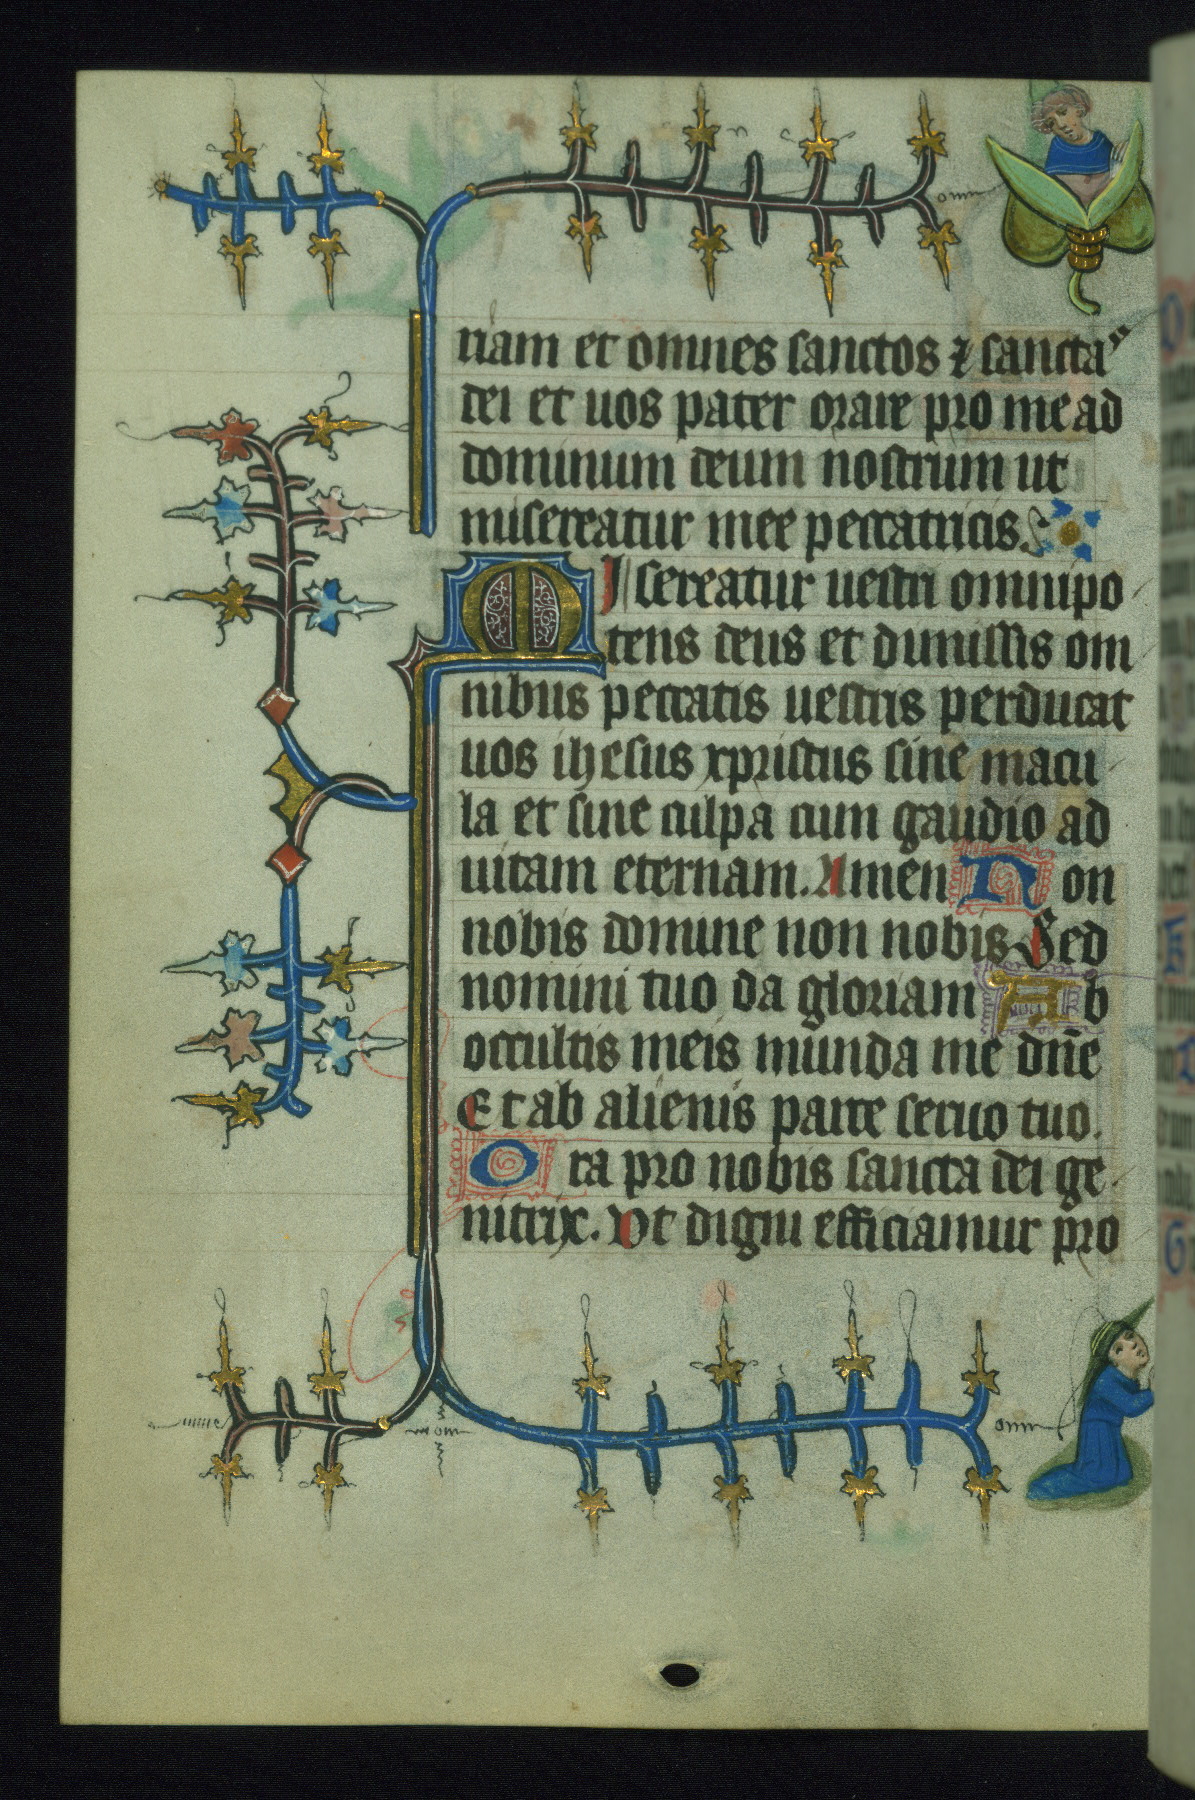 riam et omnes sanctos ⁊ sanctas
dei et uos pater orare pro me ad
dominum deum nostrum ut
misereatur mee peccatricis.
MIsereatur uestri omnipo
tens deus et dimissis om
nibus peccatis uestris perducat
uos ihesus xpristus sine macu
la et sine culpa cum gaudio ad
uitam eternam. Amen Non
nobis domine non nobis Sed
nomini tuo da gloriam Ab
occultis meis munda me dn̄e
Et ab alienis parce seruo tuo.
Ora pro nobis sancta dei ge
nitrix. Vt digni efficiamur pro